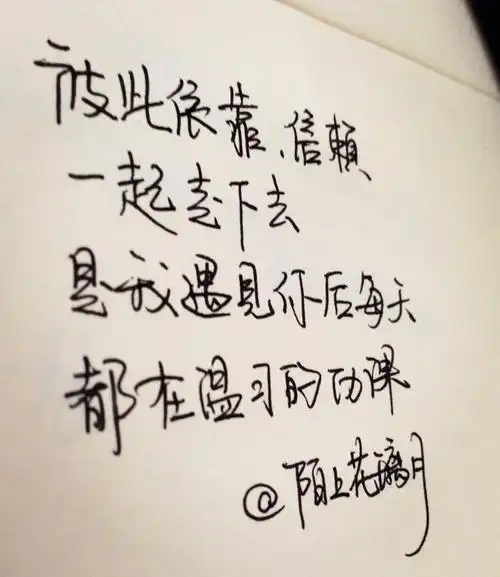 彼此依靠、信赖
一起走下去
是我遇见你后每天
都在温习的功课
@陌上花璃月